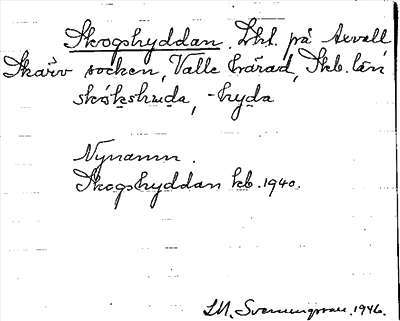 Skogshyddan. Lht. på Axvall
Skärv socken, Valle härad, Skb. län
skók̲s̲huda, -hyda
Nynamn.
Skogshyddan kb. 1940.
I.M. Svenningsson. 1946.